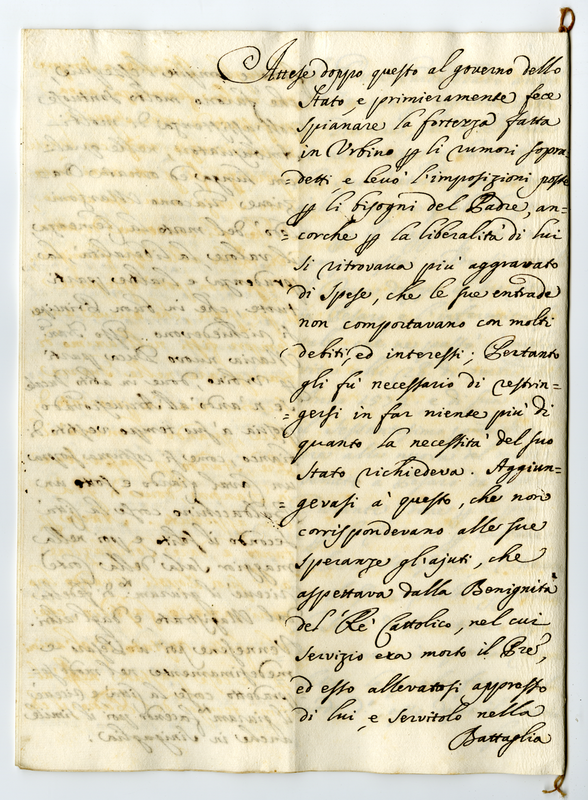 Attese doppo questo al governo dello
Stato, e primieramente fece
spianare la fortezza fatta
in Urbino ꝑ li rumori sopra=
=detti, e levò l'imposizioni poste
ꝑ li bisogni del Padre, an=
=corchè ꝑ la liberalità di lui
si ritrovava più aggravato
di spese, che le sue entrade
non comportavano con molti
debiti, ed interessi; Pertanto
gli fù necessario di restrin=
=gersi in far niente più di
quanto la necessità del suo
Stato richiedeva. Aggiun=
=gevasi à questo, che non
corrispondevano alle sue
speranze gl'ajuti, che
aspettava dalla Benignità
del Rè Cattolico, nel cui
servizio era morto il Pre,
ed esso allevatosi appresso
di lui, e servitolo nella
Battaglia